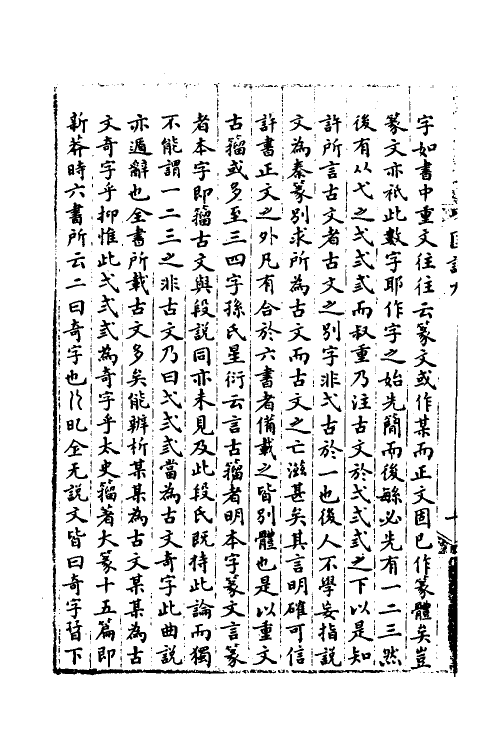 字如書中重文往往云篆文或作某而正文固巳作篆體矣豈
篆文亦祇此數字耶作字之始先簡而後緐必先有一二三然
後有从弋之弌弍弎而叔重乃注古文於弌弍弎之下以是知
許所言古文者古文之別字非弌古於一也後人不學妄指說
文為秦篆別求所為古文而古文之亡滋甚矣其言明確可信
許書正文之外凡有合於六書者備載之皆別體也是以重文
古籀或多至三四字孫氏星衍云言古籀者明本字篆文言篆
者本字即籀古文與段說同亦未見及此段氏既持此論而獨
不能謂一二三之非古文乃曰弌弍弎當為古文奇字此曲說
亦遁辭也全書所載古文多矣能辨析某某為古文某某為古
文奇字乎抑惟此弌弍弎為奇字乎太史籀著大篆十五篇即
新莽時六書所云二曰奇字也全无說文皆曰奇字晉下